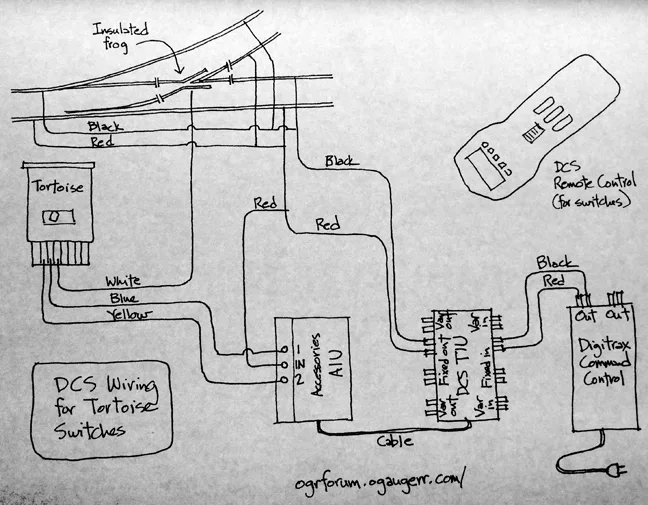 Insulated
frog
Black
Red
Black
Tortoise
DCS
Remote Control
(for switches)
Red
Red
White
Blue
Yellow
Black
Red
Out Out
Digitrax
Command
Control
1
IN
2
Accessories
AIU
Var
out
Fixed out
Var
out
DCS TIU
Var
in
Fixed in
Var
in
DCS Wiring
for Tortoise
Switches
Cable
ogrforum.ogaugerr.com/